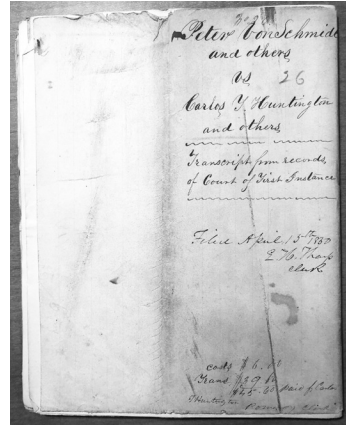 Peter VonSchmidt
and others
vs 26
Carlos T. Huntington
and others
Transcript from records,
of Court of First Instance
Filed April 15th 1850
E. H. Tharp
clerk
costs $6.
Trans
paid by Carlos
T Huntington